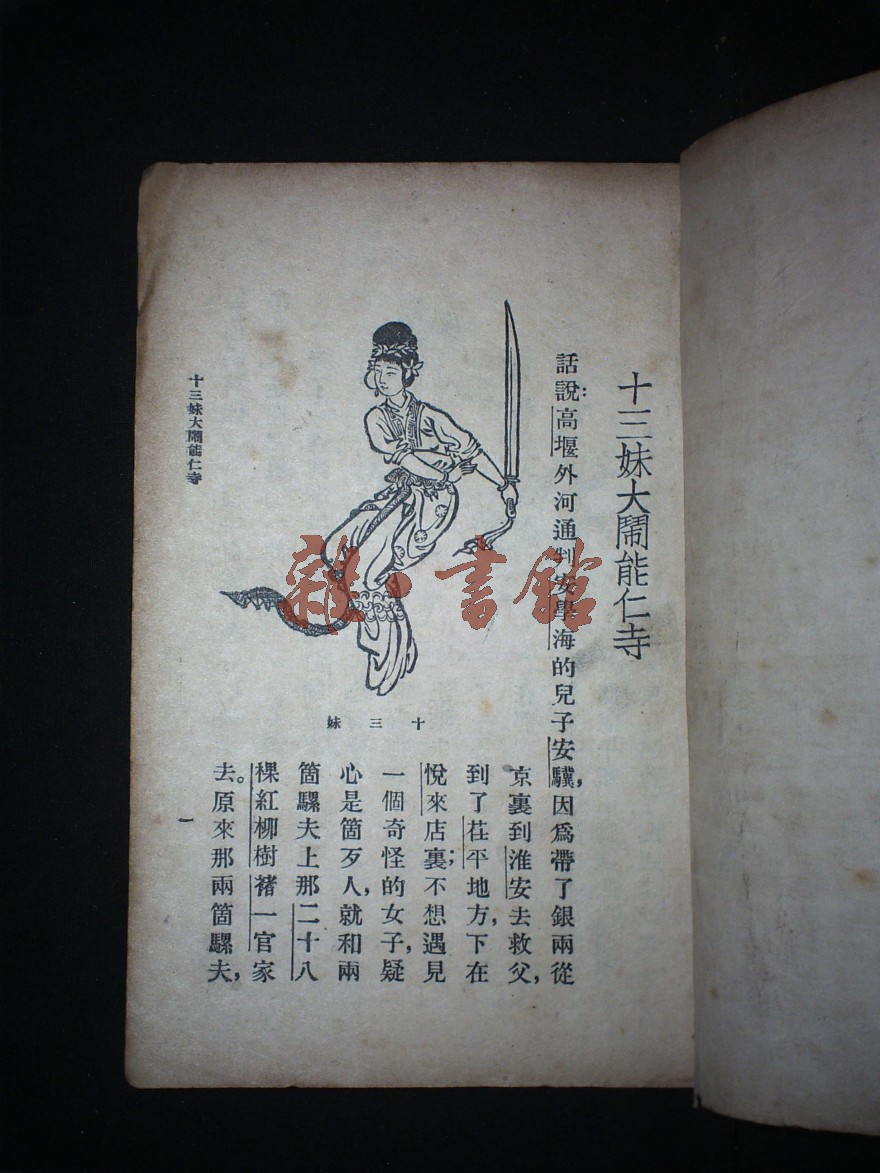 十三妹大鬧能仁寺
話說：高堰外河通判安學海的兒子安驥，因爲帶了銀兩從
京裏到淮安去救父，
到了茌平地方，下在
悅來店裏；不想遇見
一個奇怪的女子，疑
心是箇歹人，就和兩
箇騾夫上那二十八
棵紅柳樹褚一官家
去。原來那兩箇騾夫，
十三妹
十三妹大鬧能仁寺
一
雜·書館